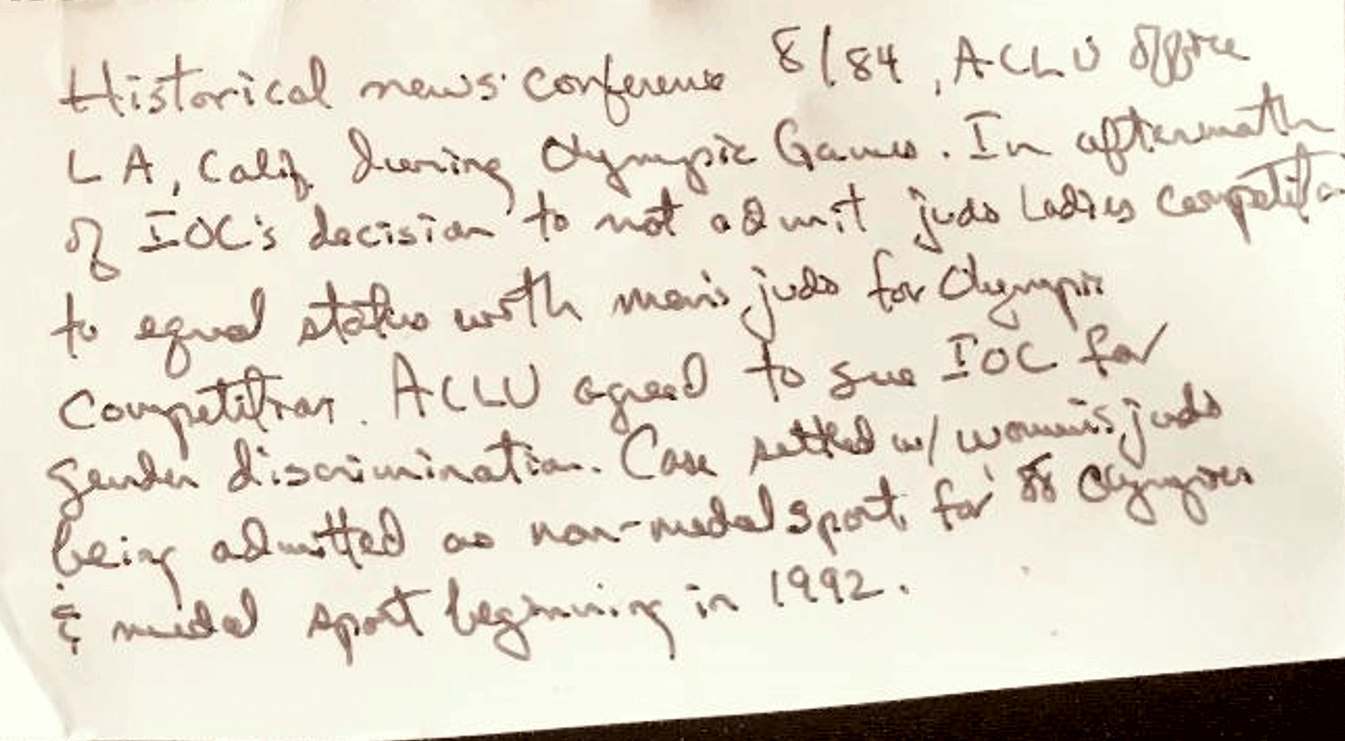 Historical news conference 8/84, ACLU office
LA, Calif. during Olympic Games. In aftermath
of IOC's decision to not admit judo ladies
to equal status with men's judo for Olympic
Competition. ACLU agreed to sue IOC for
gender discrimination. Case settled w/ women's judo
being admitted as non-medal sport for '88 Olympics
& medal sport beginning in 1992.